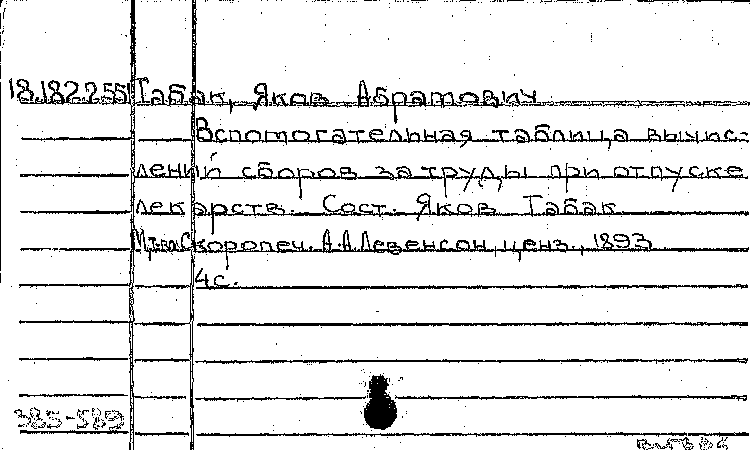 18.182.255 Табак, Яков Абрамович
Вспомогательная таблица вычис-
лений сборов за труды при отпуске
лекарств. Сост. Яков Табак
М, т-во Скоропеч. А.А.Левенсон, ценз., 1893
4с.
385-589